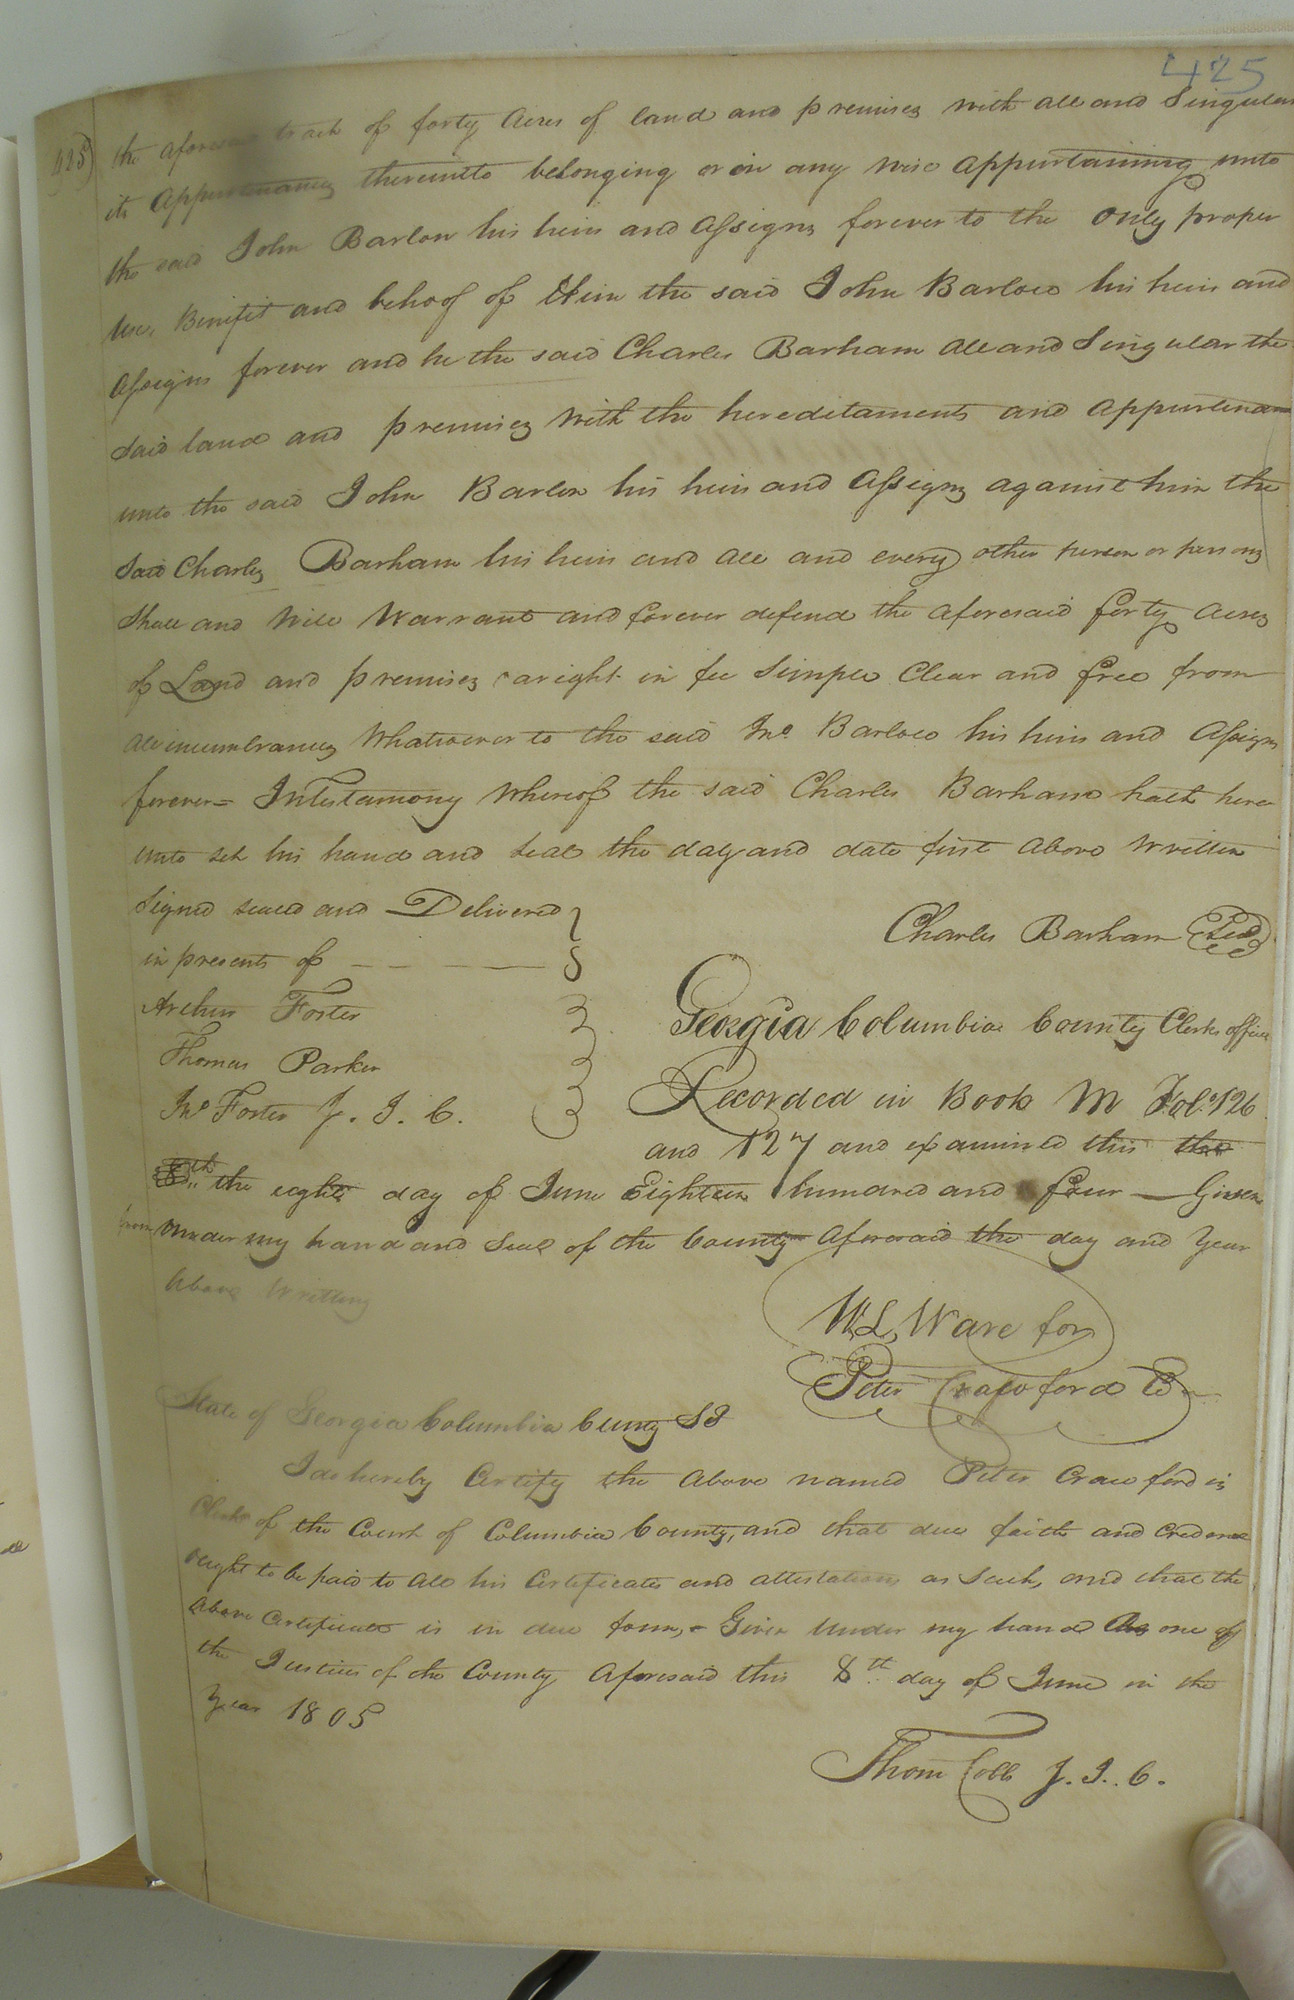 425
425)
the aforesaid track of forty Acres of land and premises with all and Singular
its Appurtenances thereunto belonging or in any wise appurtaining unto
the said John Barlow his heirs and Assigns forever to the only proper
Use, Binifit and behoof of Him the said John Barlow his heirs and
Assigns forever and he the said Charles Barham All and Singular the
said land and premises with the hereditaments and Appurtenan
unto the said John Barlow his heirs and Assigns against him the
said Charles Barham his heirs and all and every other person or persons
Shall and Will Warrant and forever defend the aforesaid forty Acres
of Land and premises a right in fee Simple Clear and free from
all incumbrances Whatsoever to the said Jno. Barlow his heirs and Assigns
forever = In testamony Whereof the said Charles Barham hath here
unto set his hand and seal the day and date first above written
Signed sealed and Delivered
in presents of
Charles Barham Seal
Arthur Foster
Thomas Parker
Jno Foster J. I. C.
Georgia Columbia County Clerks office
Recorded in Book M Fol. 126
and 127 and examined this the
8th the eight day of June Eighteen hundred and four — Given
from under my hand and Seal of the County Aforesaid the day and Year
Above Writting
W. L. Ware for
Peter Crawford
State of Georgia Columbia County SS
I do hereby Certify the above named Peter Crawford is
Clerk of the Court of Columbia County, and that due faith and credence
ought to be paid to all his Certificates and attestations as Such, and that the
above Certificate is in due form, Given Under my hand As one of
the Justices of the County Aforesaid this 8th day of June in the
Year 1805
Thom Cobb J. I. C.